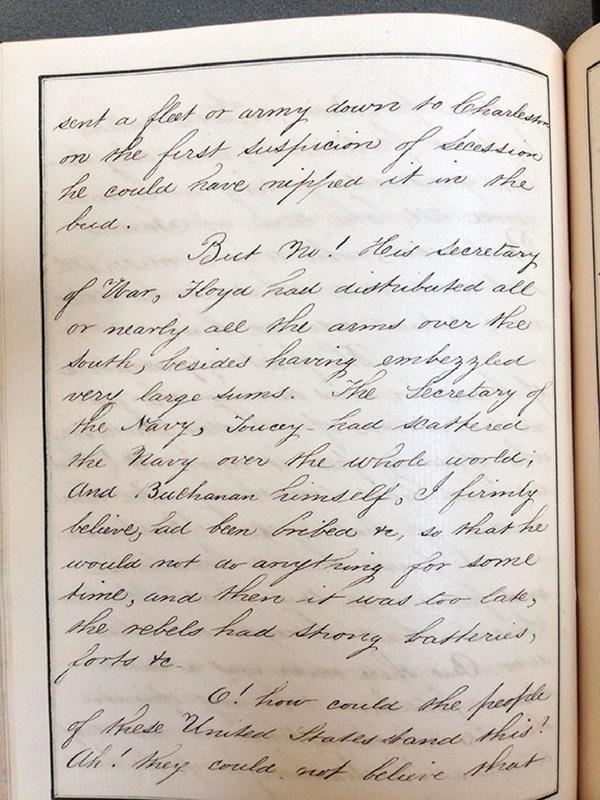 sent a fleet or army down to Charleston
on the first suspicion of secession
he could have nipped it in the
bud.
But No! His secretary
of War, Floyd had distributed all
or nearly all the arms over the
south, besides having embezzled
very large sums. The Secretary of
the Navy, Toucey - had scattered
the Navy over the whole world;
And Buchanan himself, I firmly
believe, had been bribed &c, so that he
would not do anything for some
time, and then it was too late,
the rebels had strong batteries,
forts &c -
O! how could the people
of these United States stand this?
Ah! they could not believe that